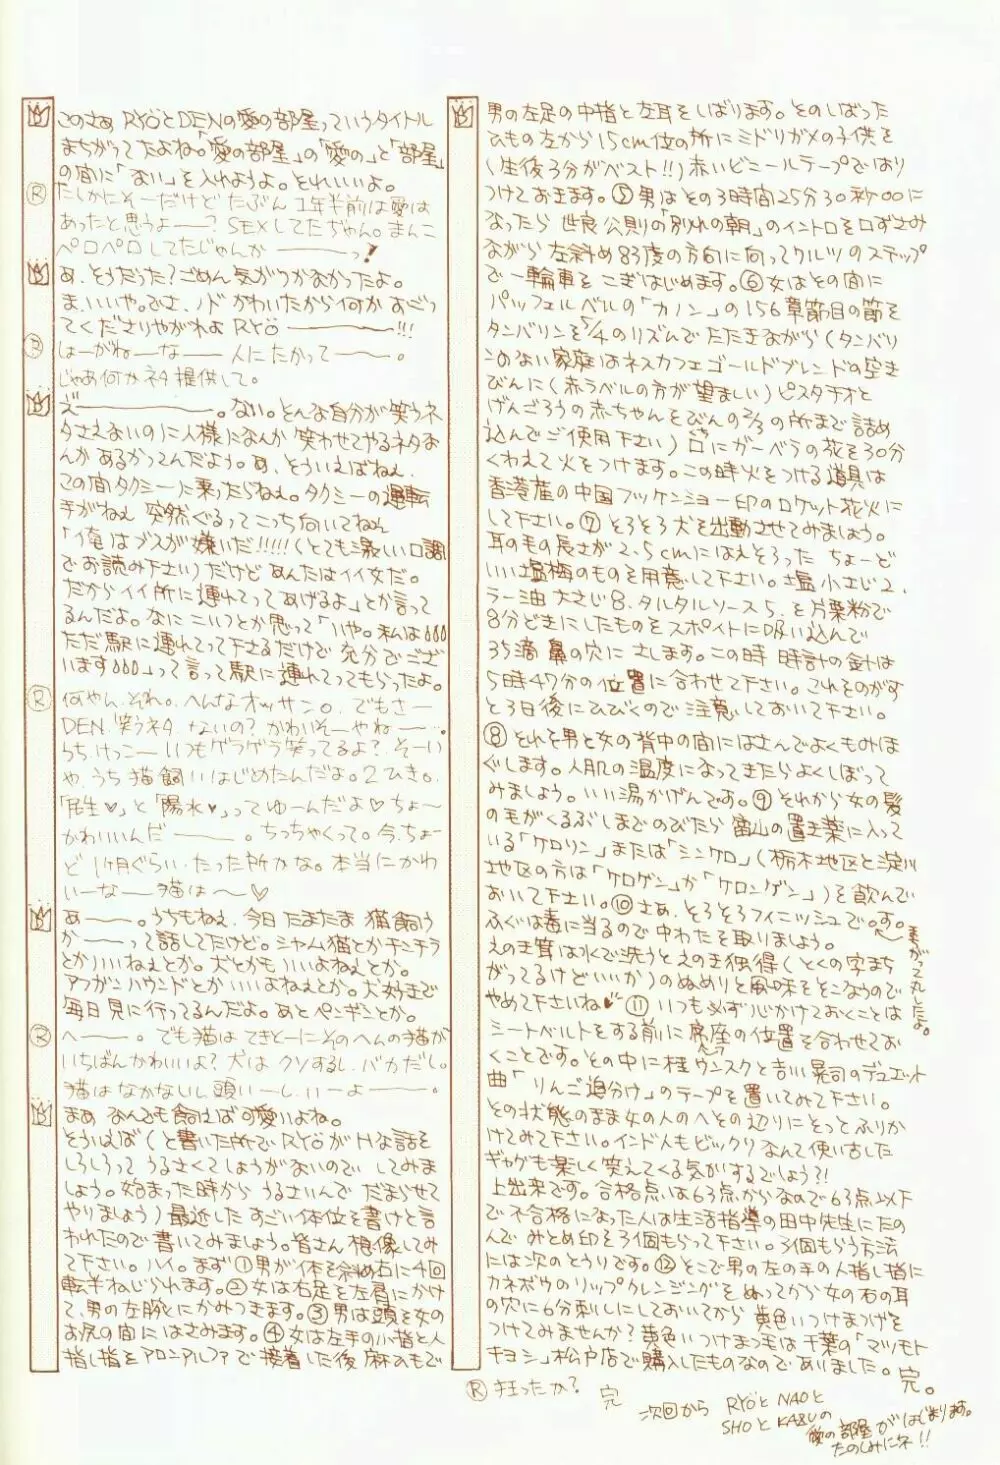 このさぁ RYÖとDENの愛の部屋っていうタイトル
まちがってたよね。「愛の部屋」の「愛の」と「部屋」
の間に「ない」を入れようよ。それいいよ。
Ⓡ たしかにそーだけど たぶん 1年半前は愛は
あったと思うよ──? SEXしてたぢゃん。まんこ
ペロペロしてたじゃんか────っ!
あ、そうだった?ごめん気がつかなかったよ。
ま、いいや。でさ、ノド かわいたから何か おごっ
てくださりやがれよ RYÖ────!!!
Ⓡ しょーがねーなー 人にたかって──。
じゃあ何かネタ提供して。
え────。ない。そんな自分が笑うネ
タさえないのに人様になんか 笑わせてやるネタな
んか あるかってんだよう。あ、そういえばねぇ、
この間タクシーに乗ったらねぇ。タクシーの運転
手がねぇ 突然ぐるってこっち向いてねぇ
「俺はブスが嫌いだ!!!!!(とても激しい口調
でお読み下さい)だけど あんたはイイ女だ。
だからイイ所に連れてってあげるよ」とか言って
るんだよ。なにこいつとか思って「いや。私は。。。
ただ駅に連れてって下さるだけで 充分でござ
います。。。」って言って駅に連れてってもらったよ。
Ⓡ 何やん、それ。へんなオッサン。でもさー
DEN、笑うネタ ないの? かわいそーやねー──。
うち、けっこーいつもゲラゲラ笑ってるよ? そーい
や、うち 猫飼いはじめたんだよ。2ひき。
「民生♥」と「陽水♥」ってゆーんだよ♡ ちょ〜
かわいいんだ───。ちっちゃくって。今、ちょー
ど 1ヶ月ぐらい、たった所かな。本当にかわ
いーなー 猫は〜♡
あ──。うちもねぇ、今日 たまたま 猫飼う
か──って話してたけど。シャム猫とかチンチラ
とかいいねぇとか。犬とかもいいよねぇとか。
アフガンハウンドとかいいよねぇとか。犬好きで
毎日見に行ってるんだよ。あとペンギンとか。
Ⓡ へ──。でも猫は てきとーにそのへんの猫が
いちばんかわいいよ? 犬は クソするし、バカだし。
猫はなかないし、頭いーし、いーよ────。
まぁ なんでも飼えば可愛いよね。
そういえば(と書いた所でRYÖがHな話を
しろしろって うるさくてしょうがないので してみま
しょう。始まった時から うるさいんで だまらせて
やりましょう)最近した すごい体位を書けと言
われたので書いてみましょう。皆さん想像してみ
て下さい。ハイ。まず①男が体を斜め右に4回
転半ねじられます。②女は右足を左肩にかけ
て、男の左腕とにかみつきます。③男は頭を女の
お尻の間にはさみます。④女は左手の小指と人
指し指をアロンアルファで接着した後 麻ひもで
男の左足の中指と左耳をしばります。そのしばった
ひもの左から15cm位の所にミドリガメの子供を
(生後3分がベスト!!)赤いビニールテープではり
つけておきます。⑤男はその3時間25分30秒00に
なったら 世良公則の「別れの朝」のイントロを口ずさみ
ながら 左斜め83度の方向に向ってワルツのステップ
で一輪車をこぎはじめます。⑥女はその間に
パッフェルベルの「カノン」の156章節目の節を
タンバリンを5/4のリズムでたたきながら(タンバリ
ンのない家庭はネスカフェゴールドブレンドの空き
びんに(赤ラベルの方が望ましい)ピスタチオと
げんごろうの赤ちゃんをびんの2/3の所まで詰め
込んでご使用下さい)口にガーベラの花を30分
くわえて火をつけます。この時火をつける道具は
香港産の中国フッケンショー印のロケット花火に
して下さい。⑦そろそろ犬を出動させてみましょう。
耳の毛の長さが2.5cmにはえそろった ちょーど
いい塩梅のものを用意して下さい。塩 小さじ2、
ラー油 大さじ8、タルタルソース5、を片栗粉で
8分どきにしたものをスポイトに吸い込んで
35滴 鼻の穴に さします。この時 時計の針は
5時47分の位置に合わせて下さい。これをのがす
と3日後にひびくので注意しておいて下さい。
⑧それを男と女の背中の間にはさんでよくもみほ
ぐします。人肌の温度になってきたらよくしぼって
みましょう。いい湯かげんです。⑨それから女の髪
の毛がくるぶしまでのびたら富山の置き薬に入って
いる「ケロリン」または「シンケロ」(栃木地区と淀川
地区の方は「ケロゲン」か「ケロンゲン」)を飲んで
おいて下さい。⑩さあ、そろそろフィニッシュです。
ふぐは毒に当るので中わたを取りましょう。
えのき茸は水で洗うとえのき独得(とくの字まち
がってるけどいいか)のぬめりと風味をそこなうので
やめて下さいね♥⑪いつも必ず心がけておくことは
まがって丸したよ。
シートベルトをする前に席座の位置を合わせてお
くことです。その中に桂ウンスクと吉川晃司のデュエット
曲「りんご追分け」のテープを置いてみて下さい。
その状態のまま女の人のへその辺りにそっとふりか
けてみて下さい。インド人もビックリなんて使い古した
ギャグも楽しく笑えてくる気がするでしょう?!
上出来です。合格点は63点からなので63点以下
で不合格になった人は生活指導の田中先生にたの
んで みとめ印を3個もらって下さい。3個もらう方法
には次のとうりです。⑫そこで男の左の手の人指し指に
カネボウのリップクレンジングをぬってから女の右の耳
の穴に6分刺しにしておいてから 黄色いつけまつげを
つけてみませんか? 黄色いつけまつ毛は千葉の「マツモト
キヨシ」松戸店で購入したものなのでありました。完。
Ⓡ 狂ったか? 完
次回から RYÖとNAOと
SHOとKAZUの
愛の部屋がはじまります。
たのしみにネ!!